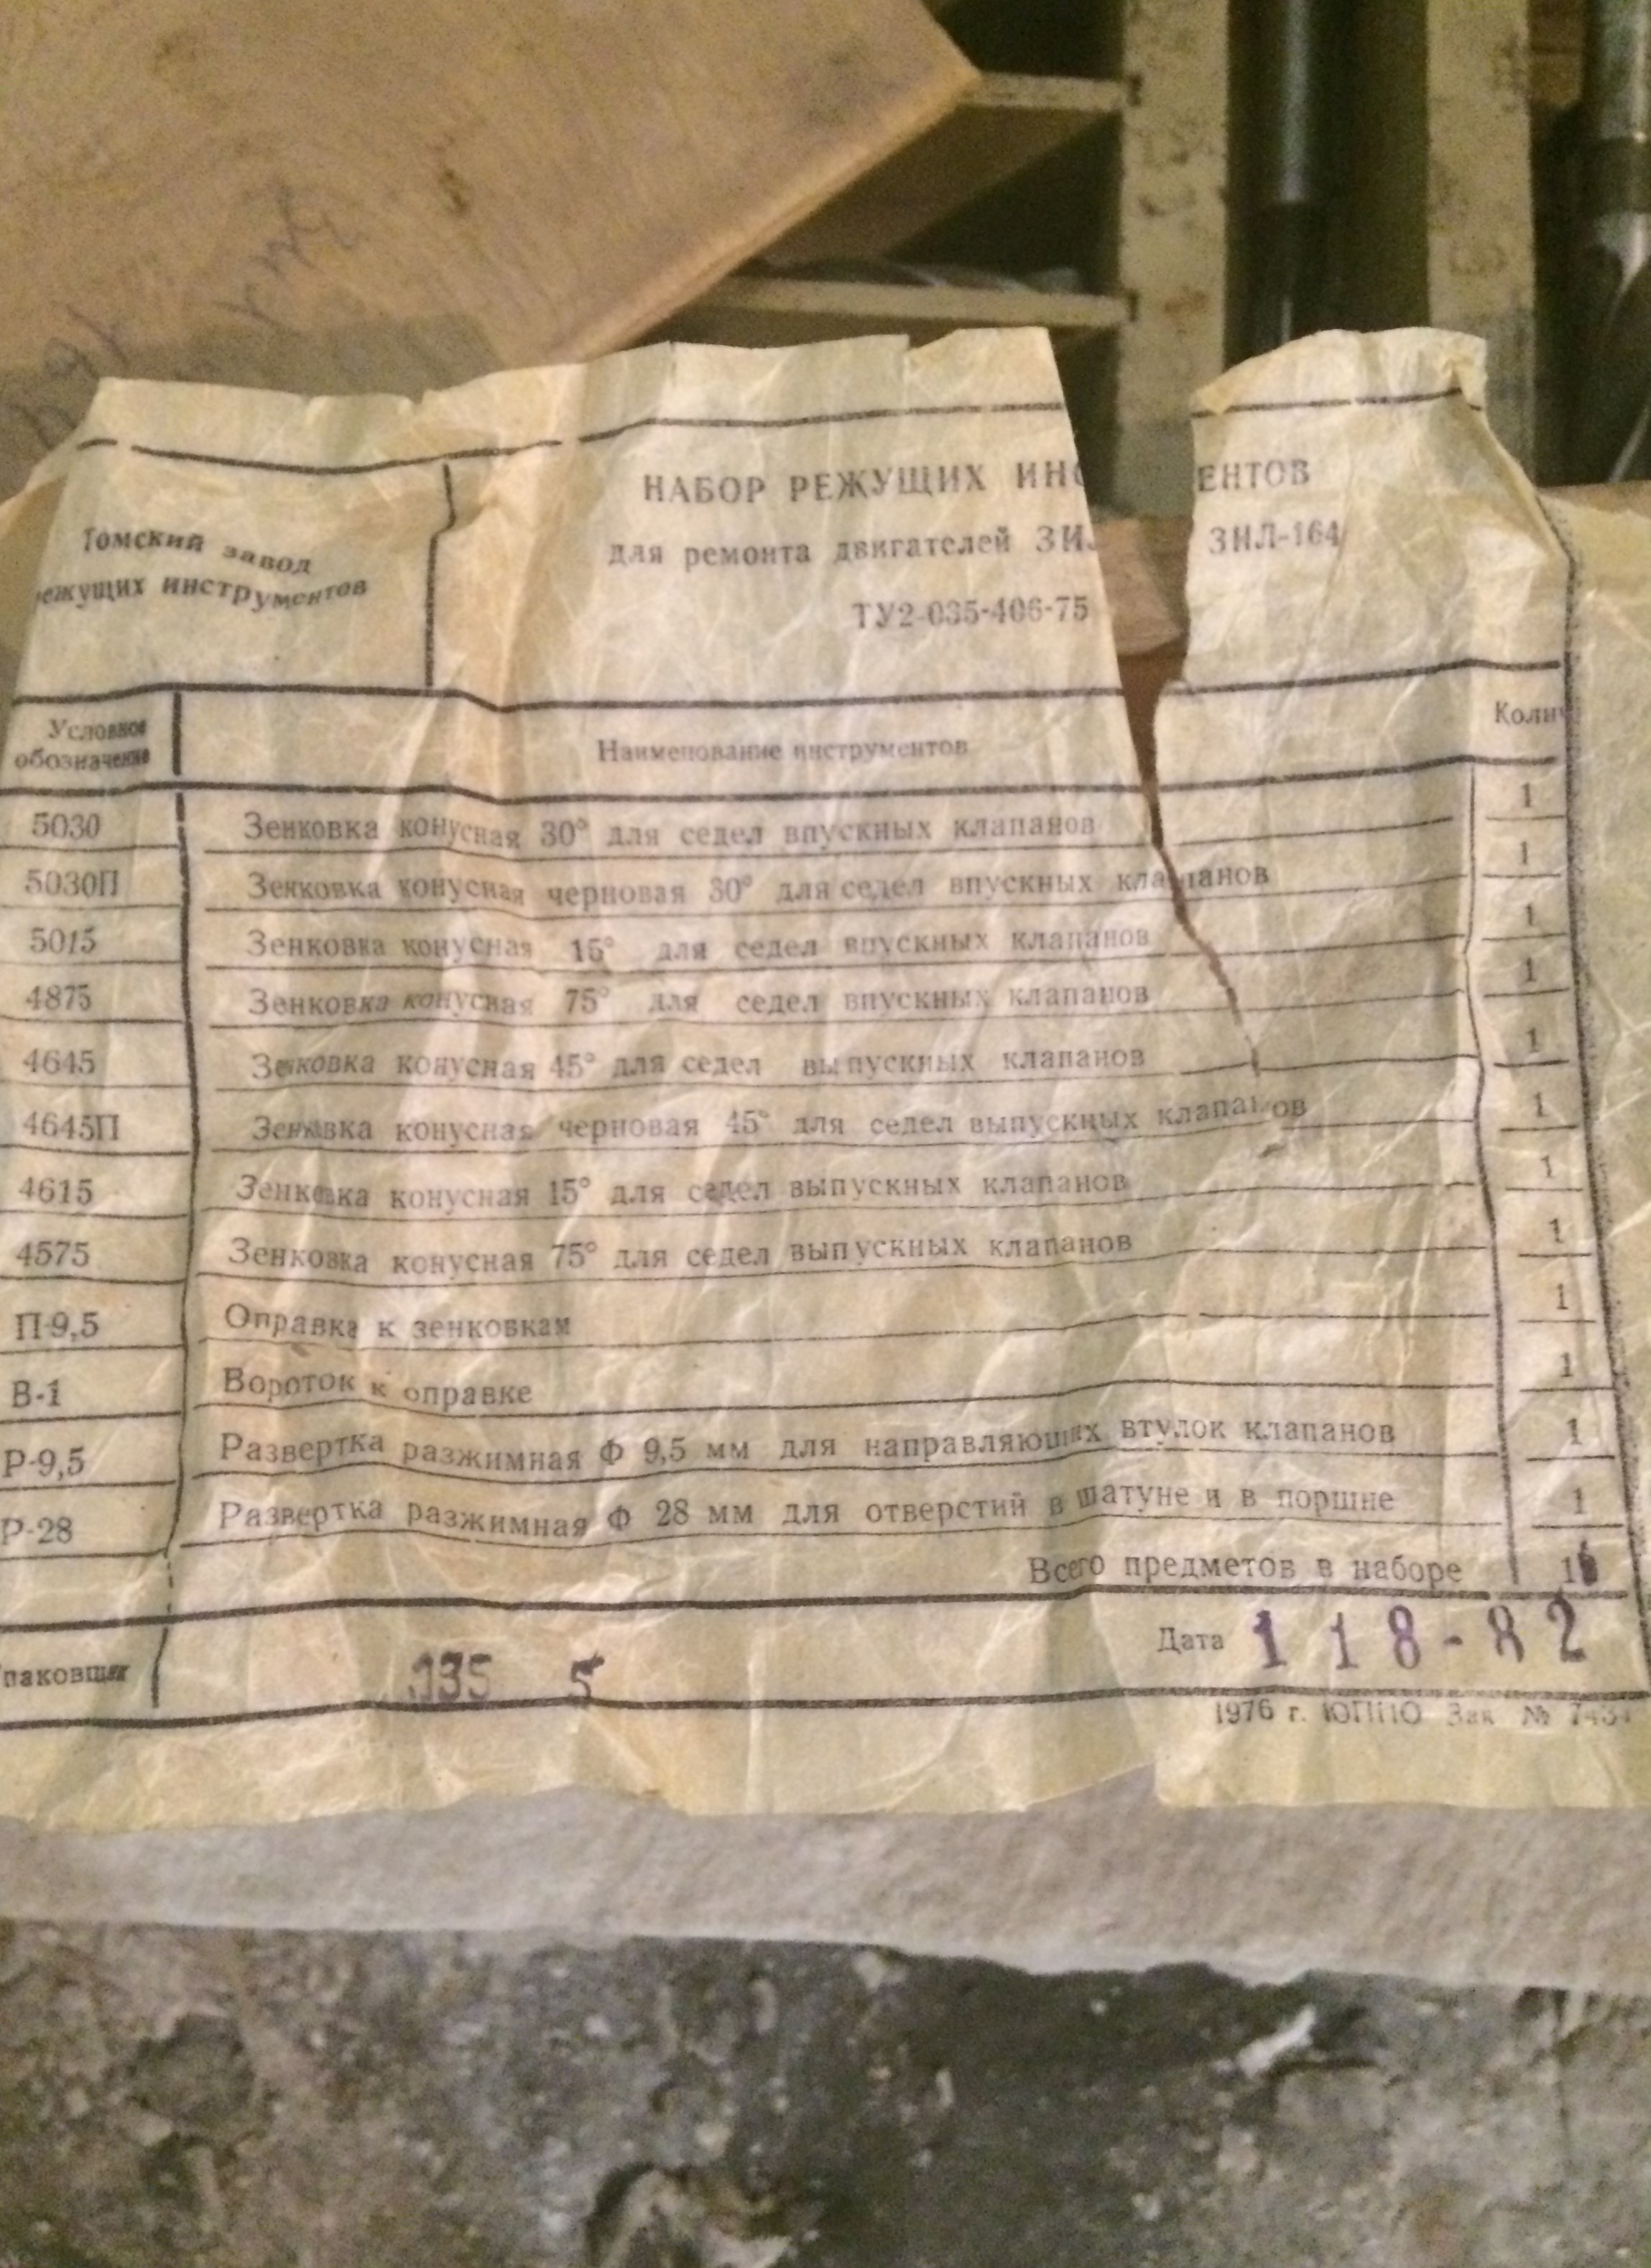 Томский завод
режущих инструментов
НАБОР РЕЖУЩИХ ИНС ЕНТОВ
для ремонта двигателей ЗИЛ ЗИЛ-164
ТУ2-035-406-75
Условное обозначение Наименование инструментов Колич
5030 Зенковка конусная 30° для седел впускных клапанов 1
5030П Зенковка конусная черновая 30° для седел впускных клапанов 1
5015 Зенковка конусная 15° для седел впускных клапанов 1
4875 Зенковка конусная 75° для седел впускных клапанов 1
4645 Зенковка конусная 45° для седел выпускных клапанов 1
4645П Зенковка конусная черновая 45° для седел выпускных клапанов 1
4615 Зенковка конусная 15° для седел выпускных клапанов 1
4575 Зенковка конусная 75° для седел выпускных клапанов 1
П-9,5 Оправка к зенковкам 1
В-1 Вороток к оправке 1
Р-9,5 Развертка разжимная Ф 9,5 мм для направляющих втулок клапанов 1
Р-28 Развертка разжимная Ф 28 мм для отверстий в шатуне и в поршне 1
Всего предметов в наборе
паковщик 5 Дата 1 18-82
1976 г. ЮППО Зак №